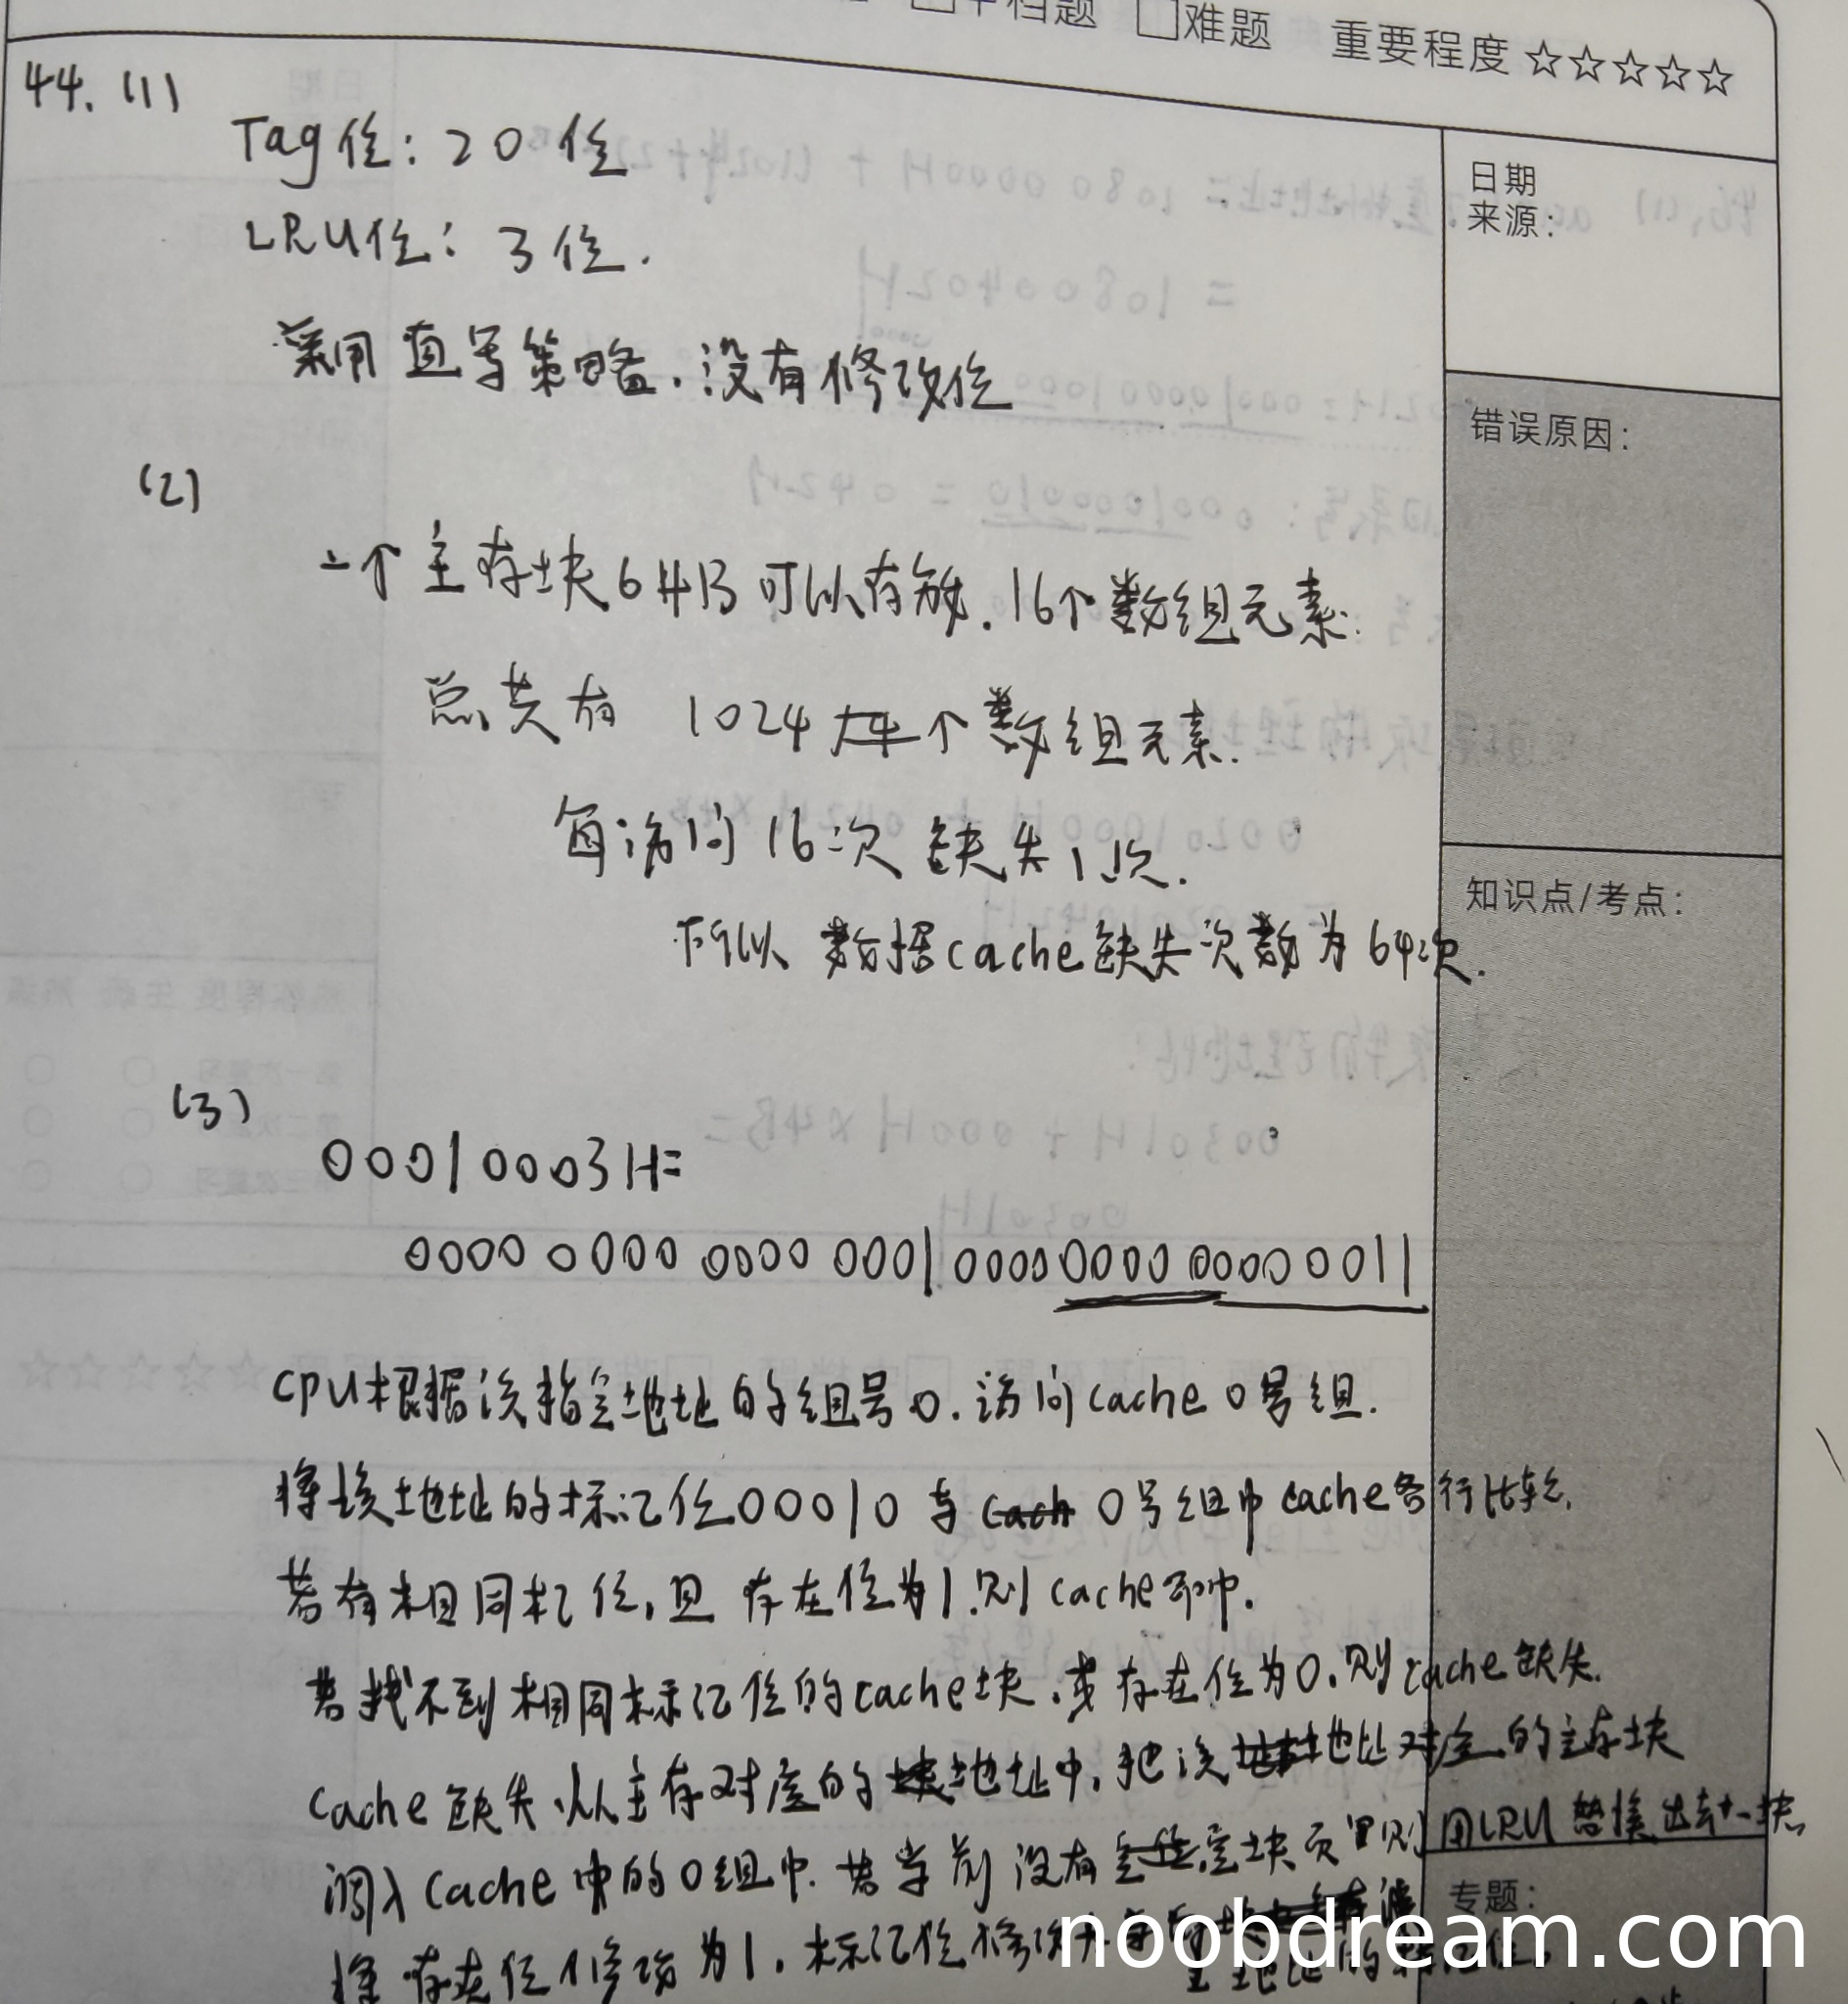 中档题 □难题 重要程度 ☆☆☆☆☆
日期
来源：
错误原因：
知识点/考点：
专题：
44. (1)
Tag位: 20位
LRU位: 3位.
采用直写策略, 没有修改位
(2)
一个主存块64B可以存放. 16个数组元素.
总共有 1024 个数组元素.
每访问16次 缺失1次.
所以 数据cache缺失次数为64次.
(3)
00010003H=
0000 0000 0000 0001 0000 0000 0000 0011
CPU根据该指令地址的组号0. 访问cache 0号组.
将该地址的标记位00010与 0号组中cache各行比较.
若有相同标记位, 且 存在位为1. 则cache命中.
若找不到相同标记位的cache块. 或存在位为0. 则cache缺失.
Cache缺失. 从主存对应的地址中, 把该地址对应的主存块
调入Cache中的0组中. 若当前没有空块 则用LRU替换出去一块.
将存在位修改为1, 标记位修改为 地址的标记位.
noobdream.com